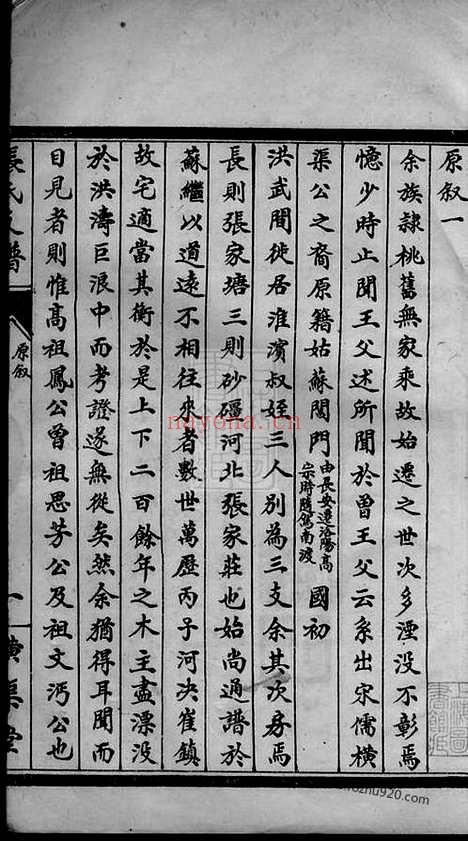 原叙一
余族隸桃舊無家乘故始遷之世次多湮没不彰焉
憶少時止聞王父述所聞於曾王父云系出宋儒橫
渠公之裔原籍姑蘇閶門由長安遷洛陽高宗時隨駕南渡國初
洪武間徙居淮濱叔姪三人別為三支余其次房焉
長則張家塘三則砂礓河北張家莊也始尚通譜於
蘇繼以道遠不相往來者數世萬歷丙子河决崔鎮
故宅適當其衝於是上下二百餘年之木主盡漂没
於洪濤巨浪中而考證遂無從矣然余猶得耳聞而
目見者則惟高祖鳳公曾祖思芳公及祖文沔公也
張氏支譜
原叙
一
橫渠堂
nayona.cn